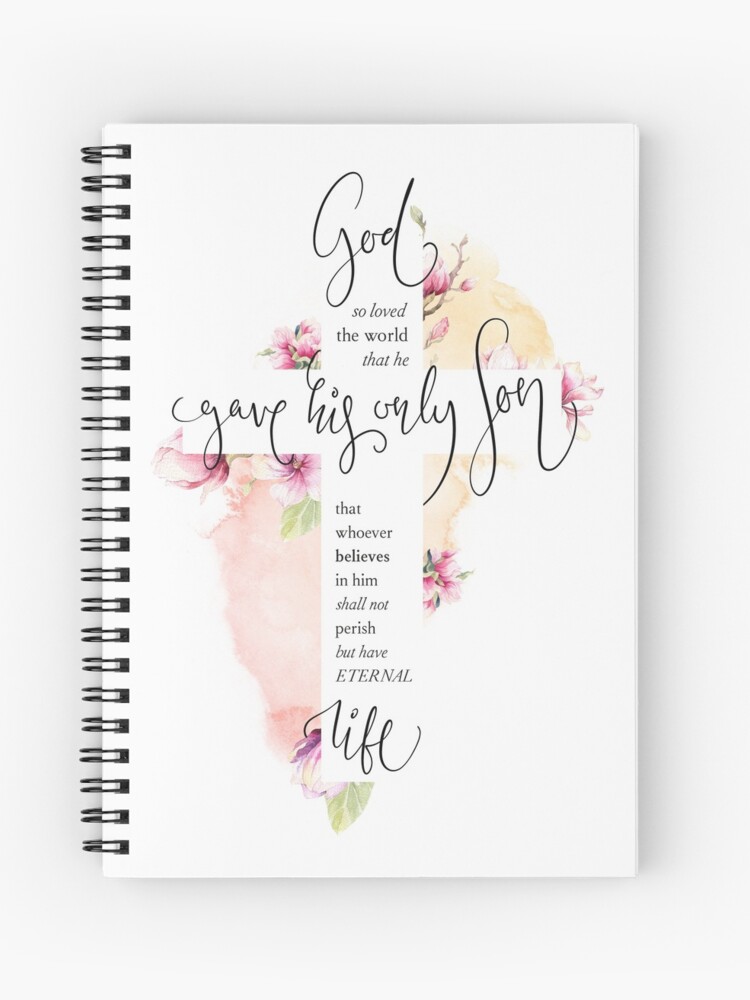 God
so loved
the world
that he
gave his only Son
that
whoever
believes
in him
shall not
perish
but have
ETERNAL
life